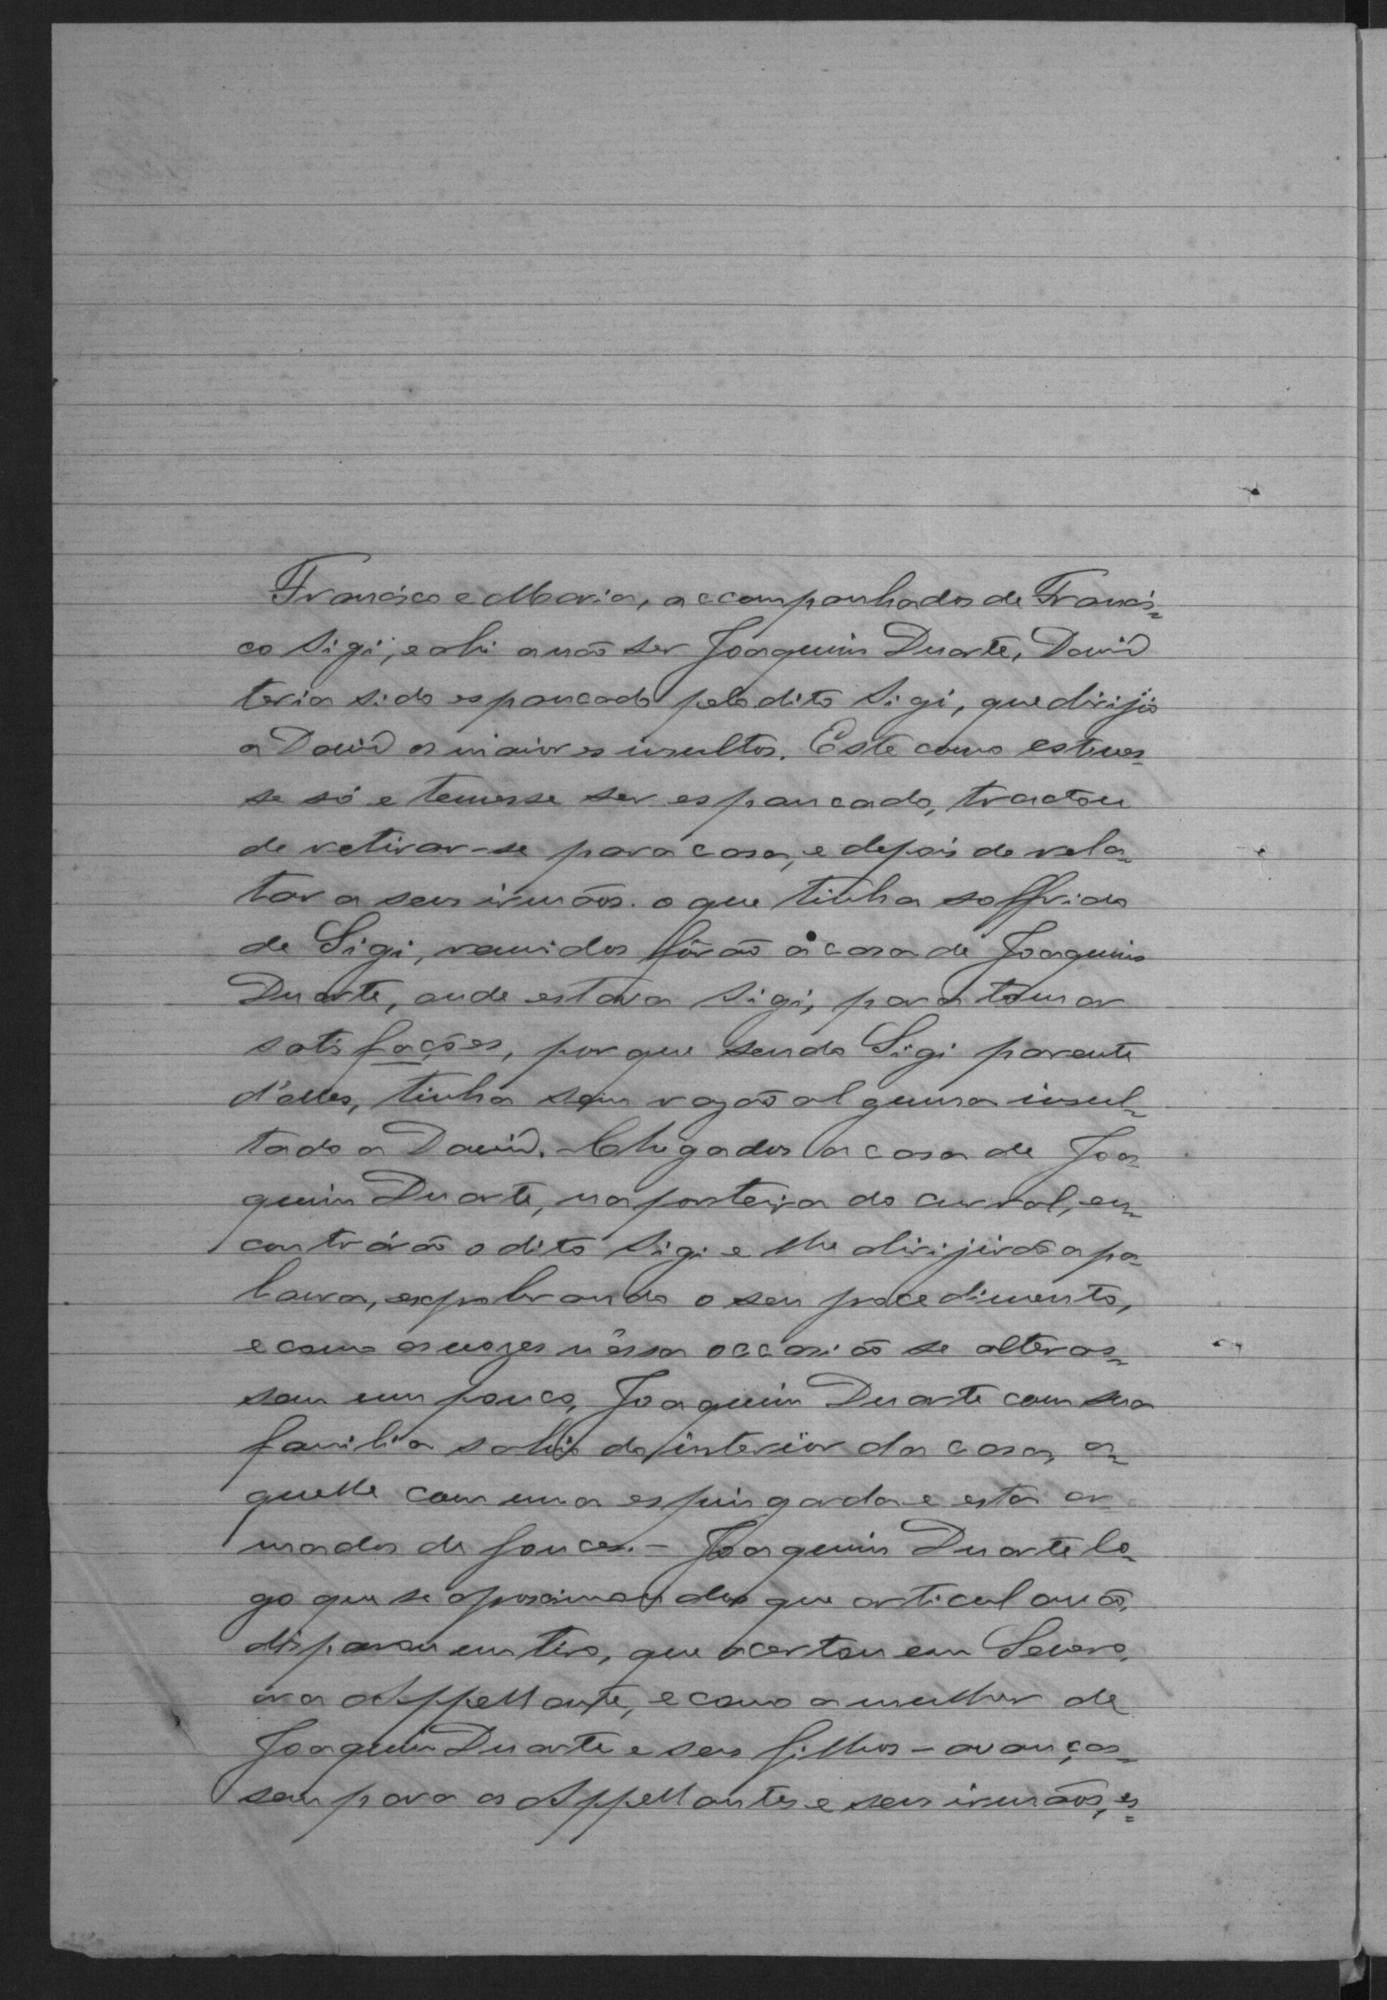 Francisco e Maria, accompanhados de Francis-
co Sigi, e ahi a não ser Joaquim Duarte, David
teria sido espancado pelo dito Sigi, que dirijio
a David os maiores insultos. Este como estives-
se só e temesse ser espancado, tractou
de retirar-se para casa, e depois de rela-
tar a seus irmãos o que tinha soffrido
de Sigi, reunidos fôrão á casa de Joaquim
Duarte, onde estava Sigi, para tomar
satisfações, porque sendo Sigi parente
d'elles, tinha sem razão alguma insul-
tado a David. Chegados a casa de Joa-
quim Duarte, na porteira do curral, en-
contrárão o dito Sigi e lhe dirijirão a pa-
lavra, exprobrando o seu procedimento,
e como as vozes n'essa occasião se alteras-
sem um pouco, Joaquim Duarte com sua
familia sahio do interior da casa, a-
quelle com uma espingarda e esta ar-
mados de fouces. – Joaquim Duarte lo-
go que se aproximou dos que articulavão,
disparou um tiro, que acertou em Severo,
ora Appellante, e como a mulher de
Joaquim Duarte e seus filhos – avanças-
sem para os Appellantes e seus irmãos, es-